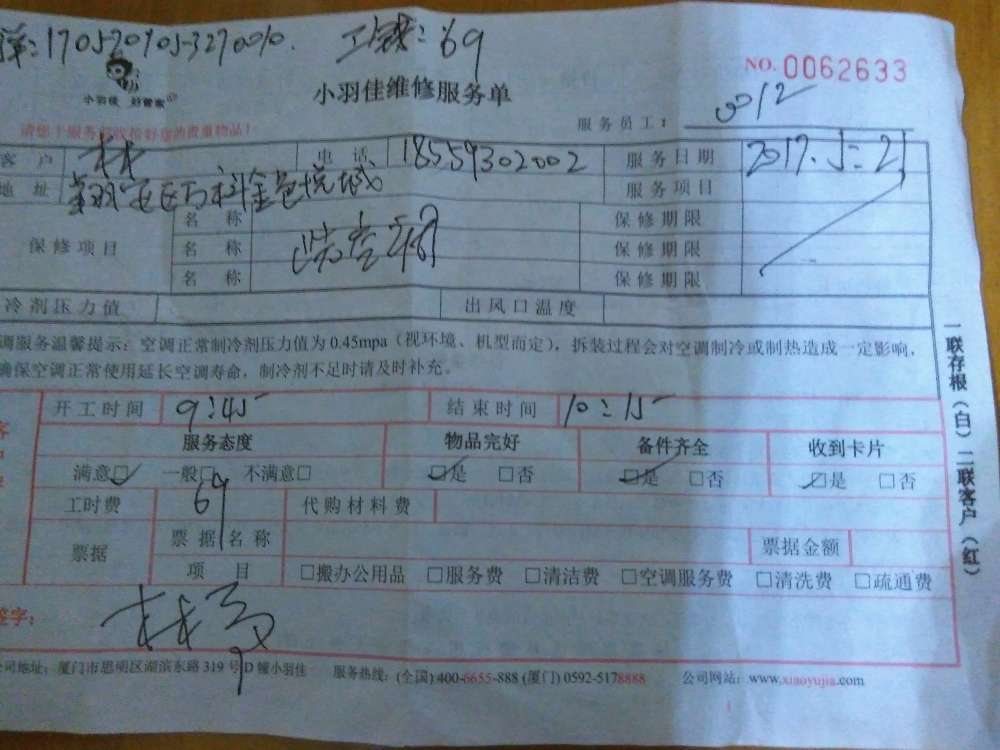 工钱:69
NO.0062633
小羽佳 好管家
小羽佳维修服务单
服务员工: 0012
客户 林 电话 18559302002 服务日期 2017.5.21
地址 翔安区万科金色悦城 服务项目
名称 保修期限
保修项目 名称 保修期限
名称 保修期限
冷剂压力值 出风口温度
调服务温馨提示:空调正常制冷剂压力值为0.45mpa(视环境、机型而定),拆装过程会对空调制冷或制热造成一定影响,
确保空调正常使用延长空调寿命,制冷剂不足时请及时补充。
开工时间 9:45 结束时间 10:15
服务态度 物品完好 备件齐全 收到卡片
满意☑ 一般□ 不满意□ ☑是 □否 ☑是 □否 ☑是 □否
工时费 69 代购材料费
票据 票据名称 票据金额
项目 □搬办公用品 □服务费 □清洁费 □空调服务费 □清洗费 □疏通费
签字:
公司地址:厦门市思明区湖滨东路319号D幢小羽佳 服务热线:(全国)400-6655-888 (厦门) 0592-5178888 公司网站:www.xiaoyujia.com
一联存根(白) 二联客户(红)